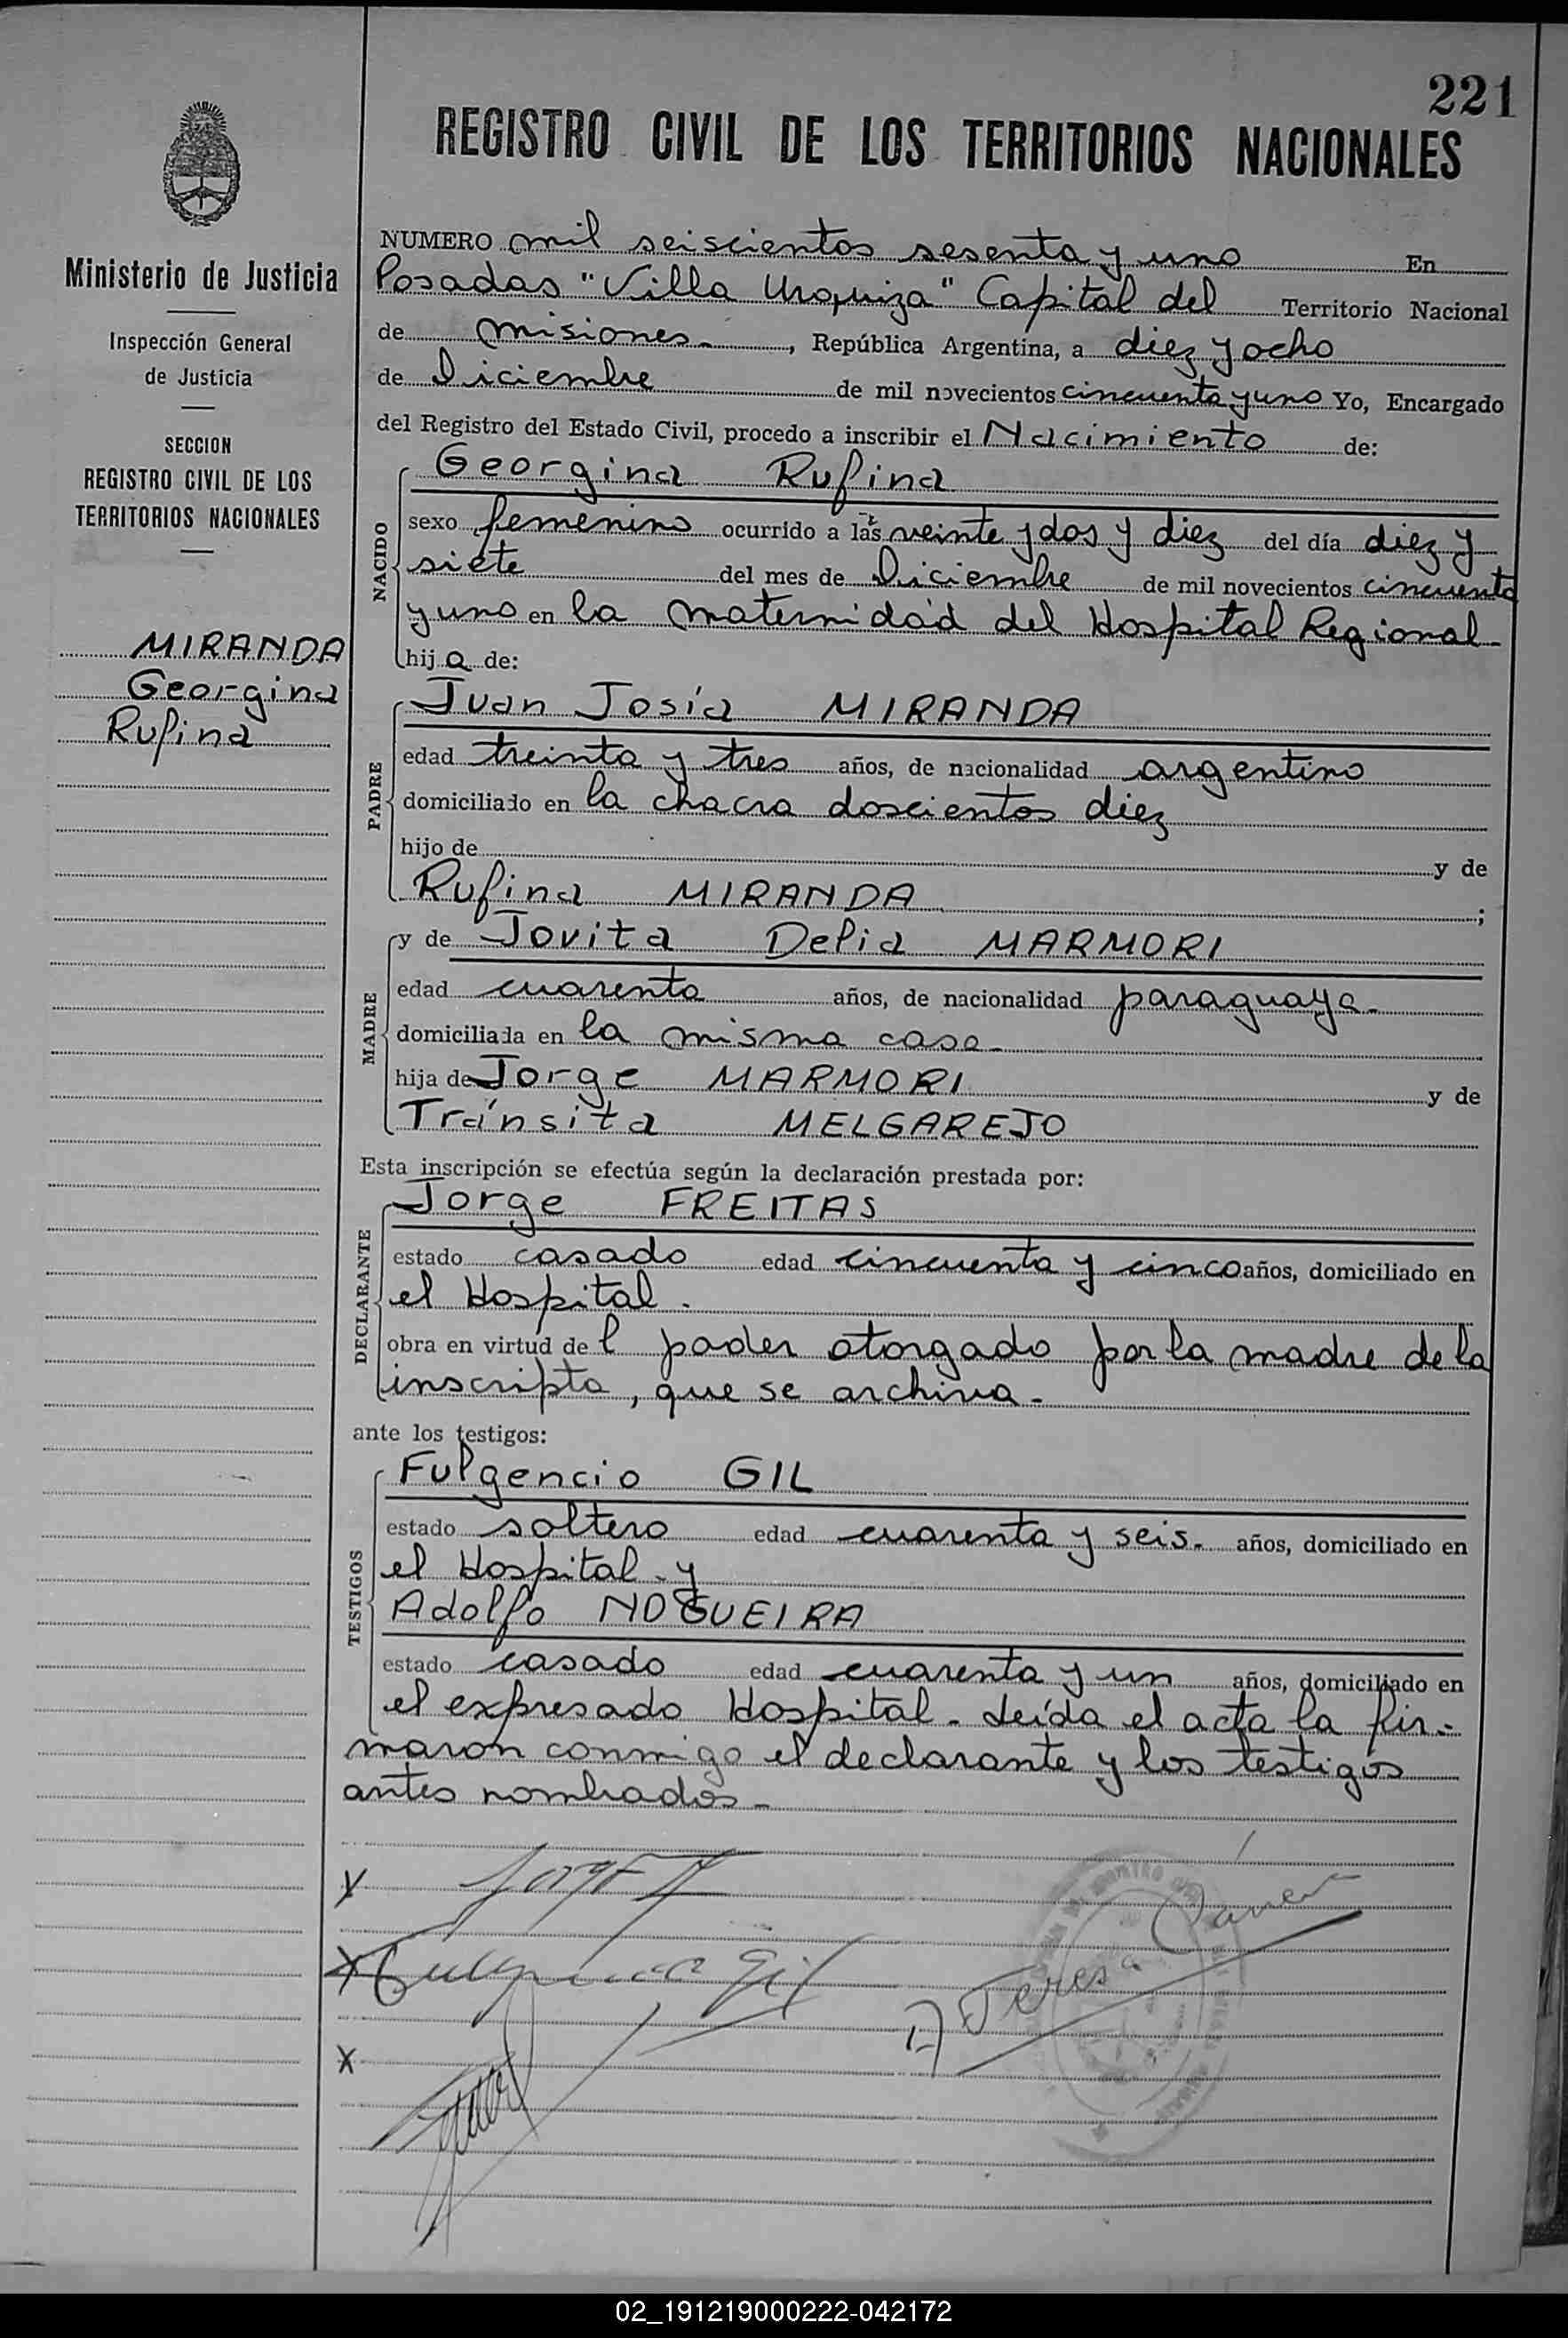 221
REGISTRO CIVIL DE LOS TERRITORIOS NACIONALES
Ministerio de Justicia
Inspección General
de Justicia
SECCION
REGISTRO CIVIL DE LOS
TERRITORIOS NACIONALES
MIRANDA
Georgina
Rufina
NUMERO mil seiscientos sesenta y uno En
Posadas "Villa Urquiza" Capital del Territorio Nacional
de misiones-, República Argentina, a diez y ocho
de Diciembre de mil novecientos cincuenta y uno Yo, Encargado
del Registro del Estado Civil, procedo a inscribir el Nacimiento de:
NACIDO
Georgina Rufina
sexo femenino ocurrido a las veinte y dos y diez del día diez y
siete del mes de Diciembre de mil novecientos cincuenta
y uno en la maternidad del Hospital Regional-
hija de:
PADRE
Juan Josía MIRANDA
edad treinta y tres años, de nacionalidad argentino
domiciliado en la chacra doscientos diez
hijo de y de
Rufina MIRANDA ;
MADRE
y de Jovita Delia MARMORI
edad cuarenta años, de nacionalidad paraguaya-
domiciliada en la misma casa-
hija de Jorge MARMORI y de
Tránsita MELGAREJO
Esta inscripción se efectúa según la declaración prestada por:
DECLARANTE
Jorge FREITAS
estado casado edad cincuenta y cinco años, domiciliado en
el Hospital.
obra en virtud de l poder otorgado por la madre de la
inscripta, que se archiva-
ante los testigos:
TESTIGOS
Fulgencio GIL
estado soltero edad cuarenta y seis- años, domiciliado en
el Hospital-y
Adolfo NOGUEIRA
estado casado edad cuarenta y un años, domiciliado en
el expresado Hospital- Leída el acta la fir-
maron conmigo el declarante y los testigos
antes nombrados-
X
X Fulgencio Gil
X
02_191219000222-042172